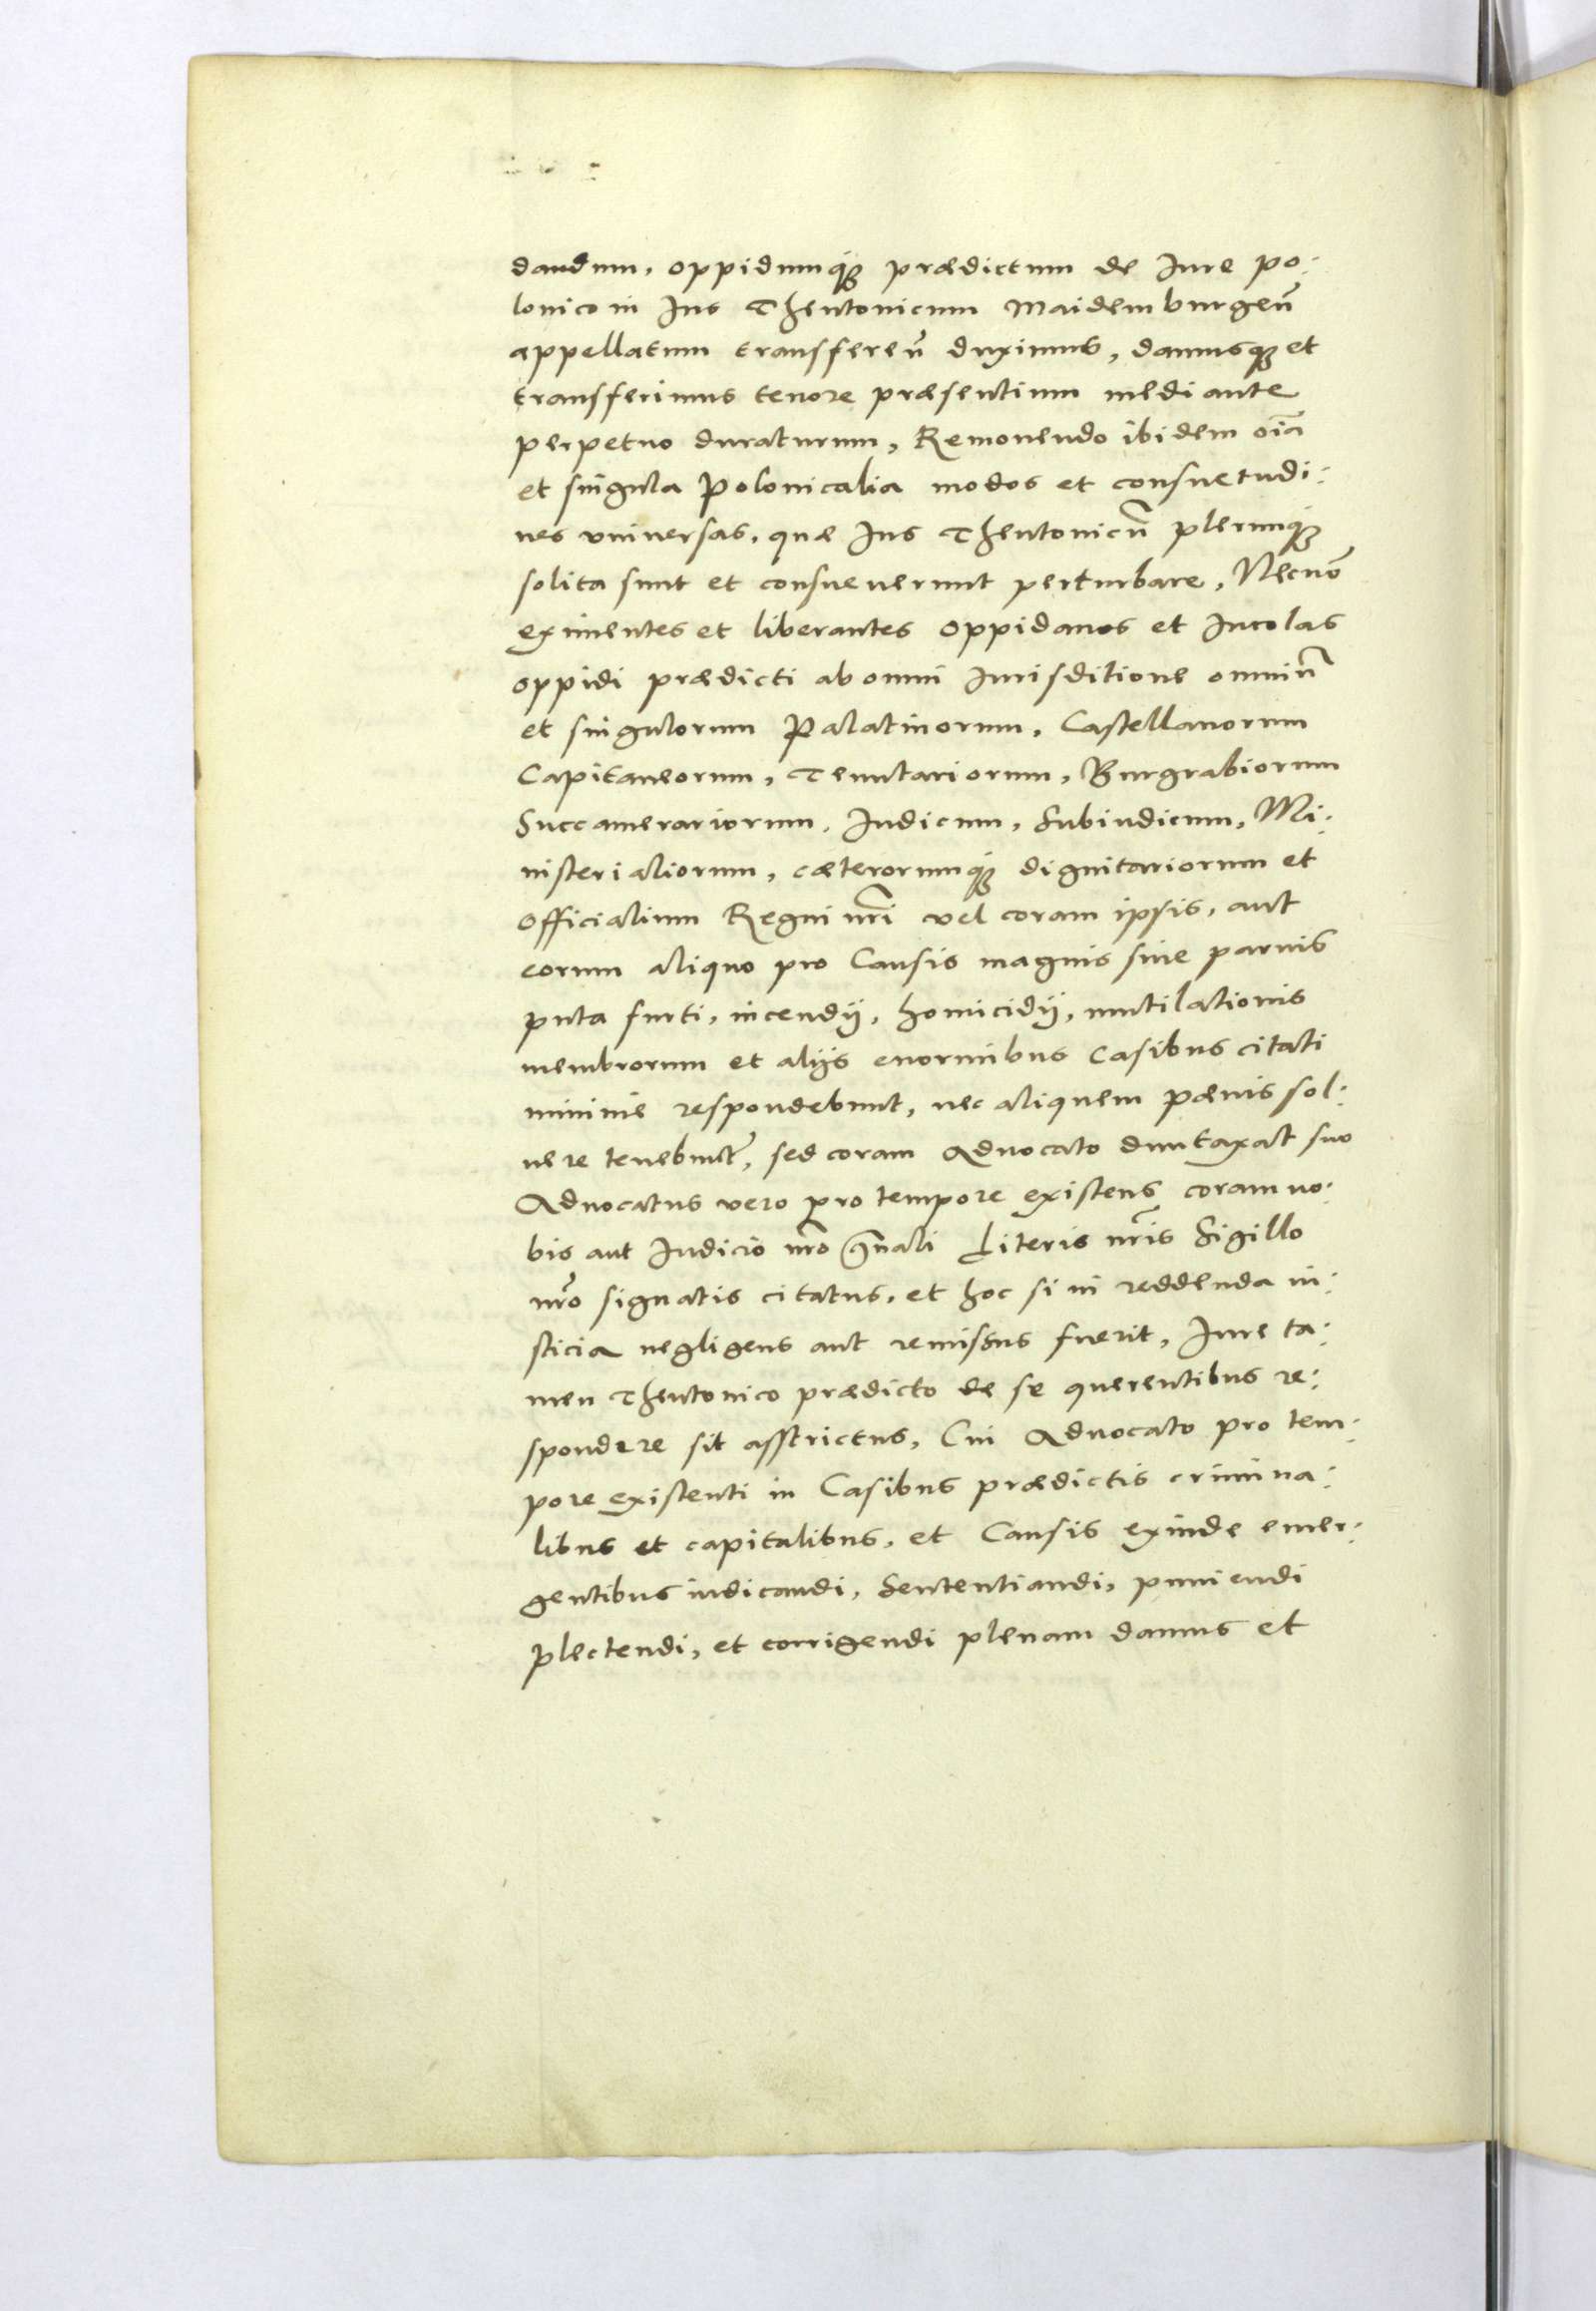 dandum, oppidumq́ꝫ prædictum de Iure po:
lonico in Ius Theutonicum Maidemburgen̄
appellatum transferen̄ duximus, damusqꝫ et
transferimus tenore præsentium mediante
perpetuo duraturum, Remouendo ibidem oi͞a
et singula Polonicalia modos et consuetudi:
nes vniuersas, quæ Ius Theutonicū plerunq́ꝫ
solita sunt et consueuerunt perturbare, Necnō
eximentes et liberantes oppidanos et Incolas
oppidi prædicti ab omni Iurisditione omniū
et singulorum Palatinorum, Castellanorum
Capitaneorum, Tenutariorum, Burgrabiorum
Succamerariorum, Iudicum, Subiudicum, Mi:
nisterialiorum, cæterorumq́ꝫ dignitariorum et
Officialium Regni nr̄i vel coram ipsis, aut
eorum aliquo pro Causis magnis siue paruis
puta furti, incendij, homicidij, mutilationis
membrorum et alijs enormibus Casibus citati
minime respondebunt, nec aliquem pænis sol:
uere tenebunt͛, sed coram Aduocato duntaxat suo
Aduocatus vero pro tempore existens coram no:
bis aut Iudicio nr̄o gn̄ali Literis nr̄is Sigillo
nr̄o signatis citatus, et hoc si in reddenda iu:
sticia negligens aut remissus fuerit, Iure ta:
men Theutonico prædicto de se querentibus re:
spondere sit asstrictus, Cui Aduocato pro tem:
pore existenti in Casibus prædictis crimina:
libus et capitalibus, et Causis exinde emer:
gentibus iudicandi, Sententiandi, puniendi
plectendi, et corrigendi plenam damus et